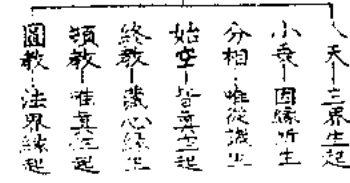 人天—三界生起
小乗—因緣所生
分相—唯從識生
始空—皆真空起
終教—藏心緣生
頓教—唯真起
圓教—法界緣起